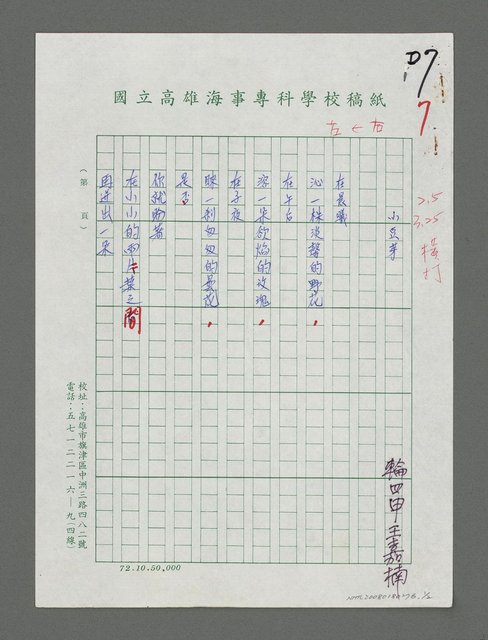 D7
7
國立高雄海事專科學校稿紙
右→左
2.5
3.25
橫打
小豆芽
在晨曦
沁一株淡馨的野花，
在午后
深一朵欲焰的玫瑰，
在子夜
睞一剎匆匆的曇花，
是否
你就兩着
在小小的兩片葉之間
再迸出一朵
(第 頁)
輪四甲王嘉楠
校址：高雄市旗津區中洲三路四八二號
電話：五七一二二一六—九(四線)
72.10.50,000